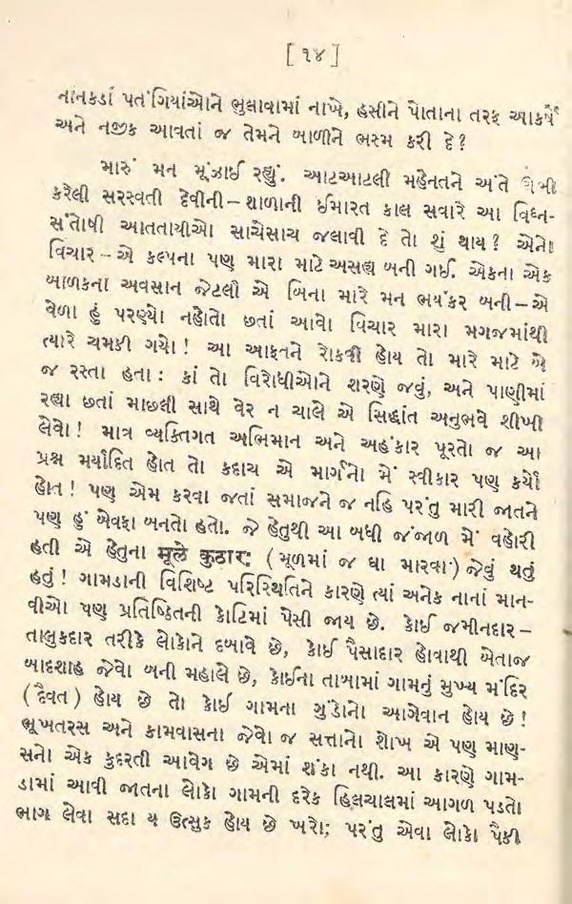 [ ૧૪ ]
નાનકડાં પતંગિયાંઓને ભુલાવામાં નાખે, હસીને પોતાના તરફ આકર્ષે
અને નજીક આવતાં જ તેમને બાળીને ભસ્મ કરી દે?
મારું મન મૂંઝાઈ રહ્યું. આટઆટલી મહેનતને અંતે ઊભી
કરેલી સરસ્વતી દેવીની – શાળાની ઈમારત કાલ સવારે આ વિઘ્ન-
સંતોષી આતતાયીઓ સાચેસાચ જલાવી દે તો શું થાય? એનો
વિચાર – એ કલ્પના પણ મારા માટે અસહ્ય બની ગઈ. એકના એક
બાળકના અવસાન જેટલી એ બિના મારે મન ભયંકર બની – એ
વેળા હું પરણ્યો નહોતો છતાં આવો વિચાર મારા મગજમાંથી
ત્યારે ચમકી ગયો! આ આફતને રોકવી હોય તો મારે માટે બે
જ રસ્તા હતા: કાં તો વિરોધીઓને શરણે જવું, અને પાણીમાં
રહ્યા છતાં માછલી સાથે વેર ન ચાલે એ સિદ્ધાંત અનુભવે શીખી
લેવો! માત્ર વ્યક્તિગત અભિમાન અને અહંકાર પૂરતો જ આ
પ્રશ્ન મર્યાદિત હોત તો કદાચ એ માર્ગનો મેં સ્વીકાર પણ કર્યો
હોત! પણ એમ કરવા જતાં સમાજને જ નહિ પરંતુ મારી જાતને
પણ હું બેવફા બનતો હતો. જે હેતુથી આ બધી જંજાળ મેં વહોરી
હતી એ હેતુના मूले कुठार: (મૂળમાં જ ઘા મારવા) જેવું થતું
હતું! ગામડાની વિશિષ્ટ પરિસ્થિતિને કારણે ત્યાં અનેક નાનાં માન-
વીઓ પણ પ્રતિષ્ઠિતની કોટિમાં પેસી જાય છે. કોઈ જમીનદાર –
તાલુકદાર તરીકે લોકોને દબાવે છે, કોઈ પૈસાદાર હોવાથી બેતાજ
બાદશાહ જેવો બની મહાલે છે, કોઈના તાબામાં ગામનું મુખ્ય મંદિર
(દૈવત) હોય છે તો કોઈ ગામના ગુંડોનો આગેવાન હોય છે!
ભૂખતરસ અને કામવાસના જેવો જ સત્તાનો શોખ એ પણ માણ-
સનો એક કુદરતી આવેગ છે એમાં શંકા નથી. આ કારણે ગામ-
ડામાં આવી જાતના લોકો ગામની દરેક હિલચાલમાં આગળ પડતો
ભાગ લેવા સદા ય ઉત્સુક હોય છે ખરો; પરંતુ એવા લોકો પૈકી